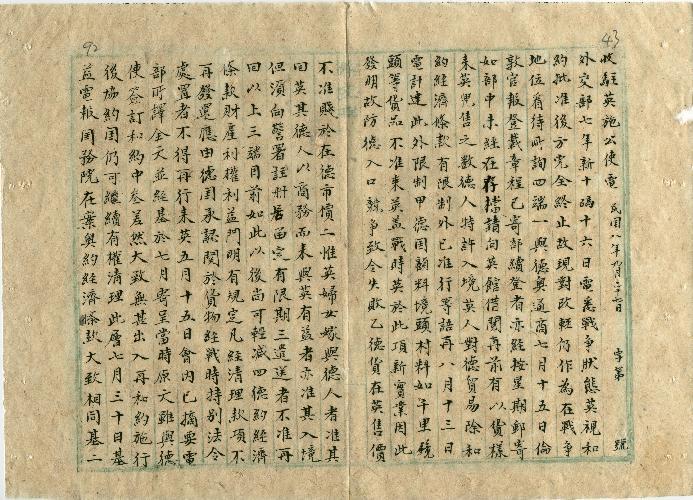 43
收駐英施公使電 民國八年九月二十七日 字第 號
外交部七年新十一碼十六日電悉戰爭狀態英視和
約批准後方完全終止故現對政輕仍作為在戰爭
地位看待所詢四端一與德奧通商七月十五日倫
敦官報登載章程已寄部續登者亦經按星期郵寄
如部中未經存擋請向英館借閱再前有以貨樣
來英兜售之數德人特許入境英人對德貿易除和
約經濟條款有限制外已准行等語再八月十三日
電計達此外限制甲德國顏料境頭材料如千里鏡
頭等貨品不准來英蓋戰時英於此項新實業因此
發明故防德入口競爭致令失敗乙德貨在英售價
92
不准賤於在德市價二惟英婦女嫁與德人者准其
回英其德人以商務而來與英有益者亦准其入境
但須向警署註冊居留定有限期三遣送者不准再
回以上三端目前如此以後尚可輕減四德約經濟
條款財產利權利益門明有規定凡經清理款項不
再發還應由德國承認關於貨物經戰時特別法令
處置者不得再行來英五月十五日會內已摘要電
部所譯全文並經基於七月寄呈當時原文雖與德
使簽訂和約中參差然大致無甚出入再和約施行
後協約國仍可繼續有權清理此層七月三十日基
益電報國務院在案奧約經濟條款大致相同基二